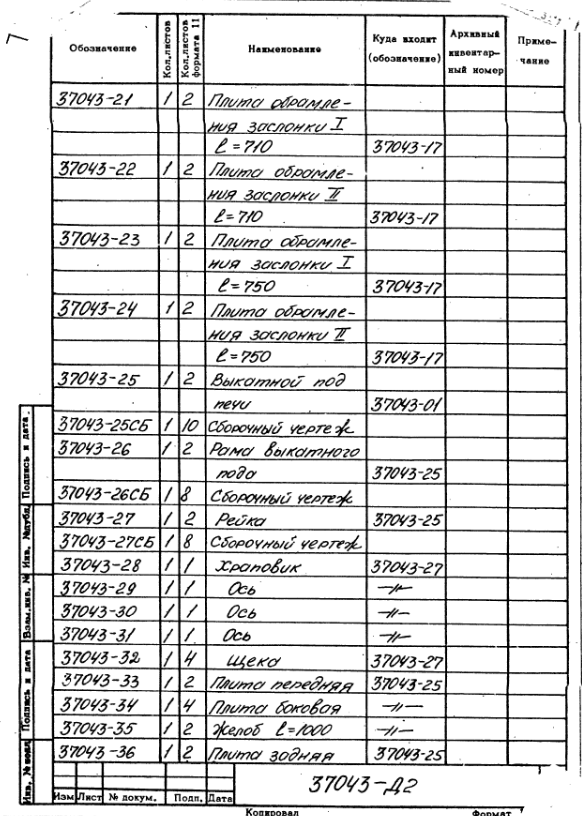 7
Обозначение Кол.листов Кол.листов формата 11 Наименование Куда входит (обозначение) Архивный инвентар- ный номер Приме- чание
37043-21 1 2 Плита обрамле-
ния заслонки I
ℓ = 710 37043-17
37043-22 1 2 Плита обрамле-
ния заслонки II
ℓ = 710 37043-17
37043-23 1 2 Плита обрамле-
ния заслонки I
ℓ = 750 37043-17
37043-24 1 2 Плита обрамле-
ния заслонки II
ℓ = 750 37043-17
37043-25 1 2 Выкатной под
печи 37043-01
37043-25СБ 1 10 Сборочный чертеж
37043-26 1 2 Рама выкатного
пода 37043-25
37043-26СБ 1 8 Сборочный чертеж
37043-27 1 2 Рейка 37043-25
37043-27СБ 1 8 Сборочный чертеж
37043-28 1 1 Храповик 37043-27
37043-29 1 1 Ось —//—
37043-30 1 1 Ось —//—
37043-31 1 1 Ось —//—
37043-32 1 4 Щека 37043-27
37043-33 1 2 Плита передняя 37043-25
37043-34 1 4 Плита боковая —//—
37043-35 1 2 Желоб ℓ=1000 —//—
37043-36 1 2 Плита задняя 37043-25
Инв. № подл. Подпись и дата Взам.инв. № Инв. №дубл. Подпись и дата
37043-Д2
Изм Лист № докум. Подп. Дата
Копировал Формат